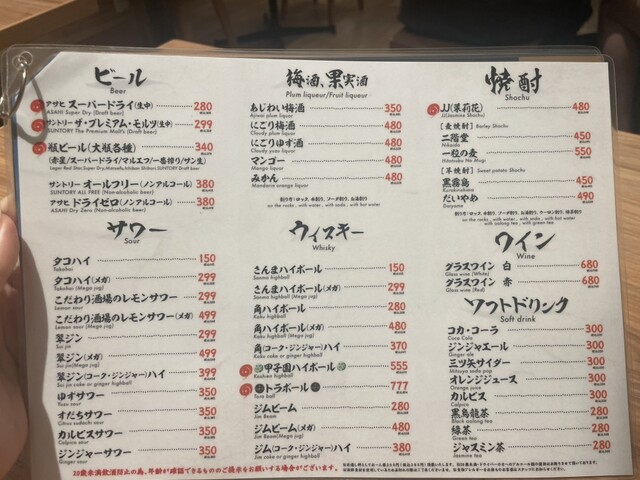 ビール
Beer
アサヒ スーパードライ(生中) 280
ASAHI Super Dry (Draft beer)
サントリー ザ・プレミアム・モルツ(生中) 299
SUNTORY The Premium Malt's (Draft beer)
瓶ビール(大瓶各種) 340
(赤星/スーパードライ/マルエフ/一番搾り/サン生)
サントリー オールフリー(ノンアルコール) 380
SUNTORY ALL FREE (Non-alcoholic beer)
アサヒ ドライゼロ(ノンアルコール) 380
ASAHI Dry Zero (Non-alcoholic beer)
サワー
Sour
タコハイ 150
Takohai
タコハイ(メガ) 299
Takohai (Mega jug)
こだわり酒場のレモンサワー 299
Lemon sour
こだわり酒場のレモンサワー(メガ) 499
Lemon sour (Mega jug)
翠ジン 299
Sui jin
翠ジン(メガ) 499
Sui jin(Mega jug)
翠ジン(コーク・ジンジャー)ハイ 399
Sui jin coke or ginger highball
ゆずサワー 350
Yuzu sour
すだちサワー 350
Citrus sudachi sour
カルピスサワー 350
Calpico sour
ジンジャーサワー 350
Ginger sour
梅酒、果実酒
Plum liqueur/Fruit liqueur
あじわい梅酒 350
Ajiwai plum liquor
にごり梅酒 480
Cloudy plum liquor
にごりゆず酒 480
Cloudy yuzu liquor
マンゴー 480
Mango liquor
みかん 480
Mandarin orange liquor
割り方・ロック、水割り、ソーダ割り、お湯割り
on the rocks , with water , with soda , with hot water
ウィスキー
Whisky
さんまハイボール 150
Sanma highball
さんまハイボール(メガ) 299
Sanma highball (Mega jug)
角ハイボール 280
Kaku highball
角ハイボール(メガ) 480
Kaku highball (Mega jug)
角(コーク・ジンジャー)ハイ 370
Kaku coke or ginger highball
甲子園ハイボール 555
Koshien highball
トラボール 777
Tora ball
ジムビーム 280
Jim Beam
ジムビーム(メガ) 480
Jim Beam(Mega jug)
ジム(コーク・ジンジャー)ハイ 380
Jim coke or ginger highball
焼酎
Shochu
JJ(茉莉花) 480
JJ(Jasmine Shochu)
[麦焼酎] Barley Shochu
二階堂 450
Nikaido
一粒の麦 550
Hitotsubu No Mugi
[芋焼酎] Sweet potato Shochu
黒霧島 450
Kurokirishima
だいやめ 490
Daiyame
ワイン
Wine
グラスワイン 白 680
Glass wine (White)
グラスワイン 赤 680
Glass wine (Red)
ソフトドリンク
Soft drink
コカ・コーラ 300
Coca Cola
ジンジャエール 300
Ginger ale
三ツ矢サイダー 300
Mitsuya soda pop
オレンジジュース 300
Orange juice
カルピス 300
Calpico
黒烏龍茶 280
Black oolong tea
緑茶 280
Green tea
ジャスミン茶 280
Jasmine tea
20歳未満飲酒防止の為、年齢が確認できるもののご提示をお願いする場合がございます。